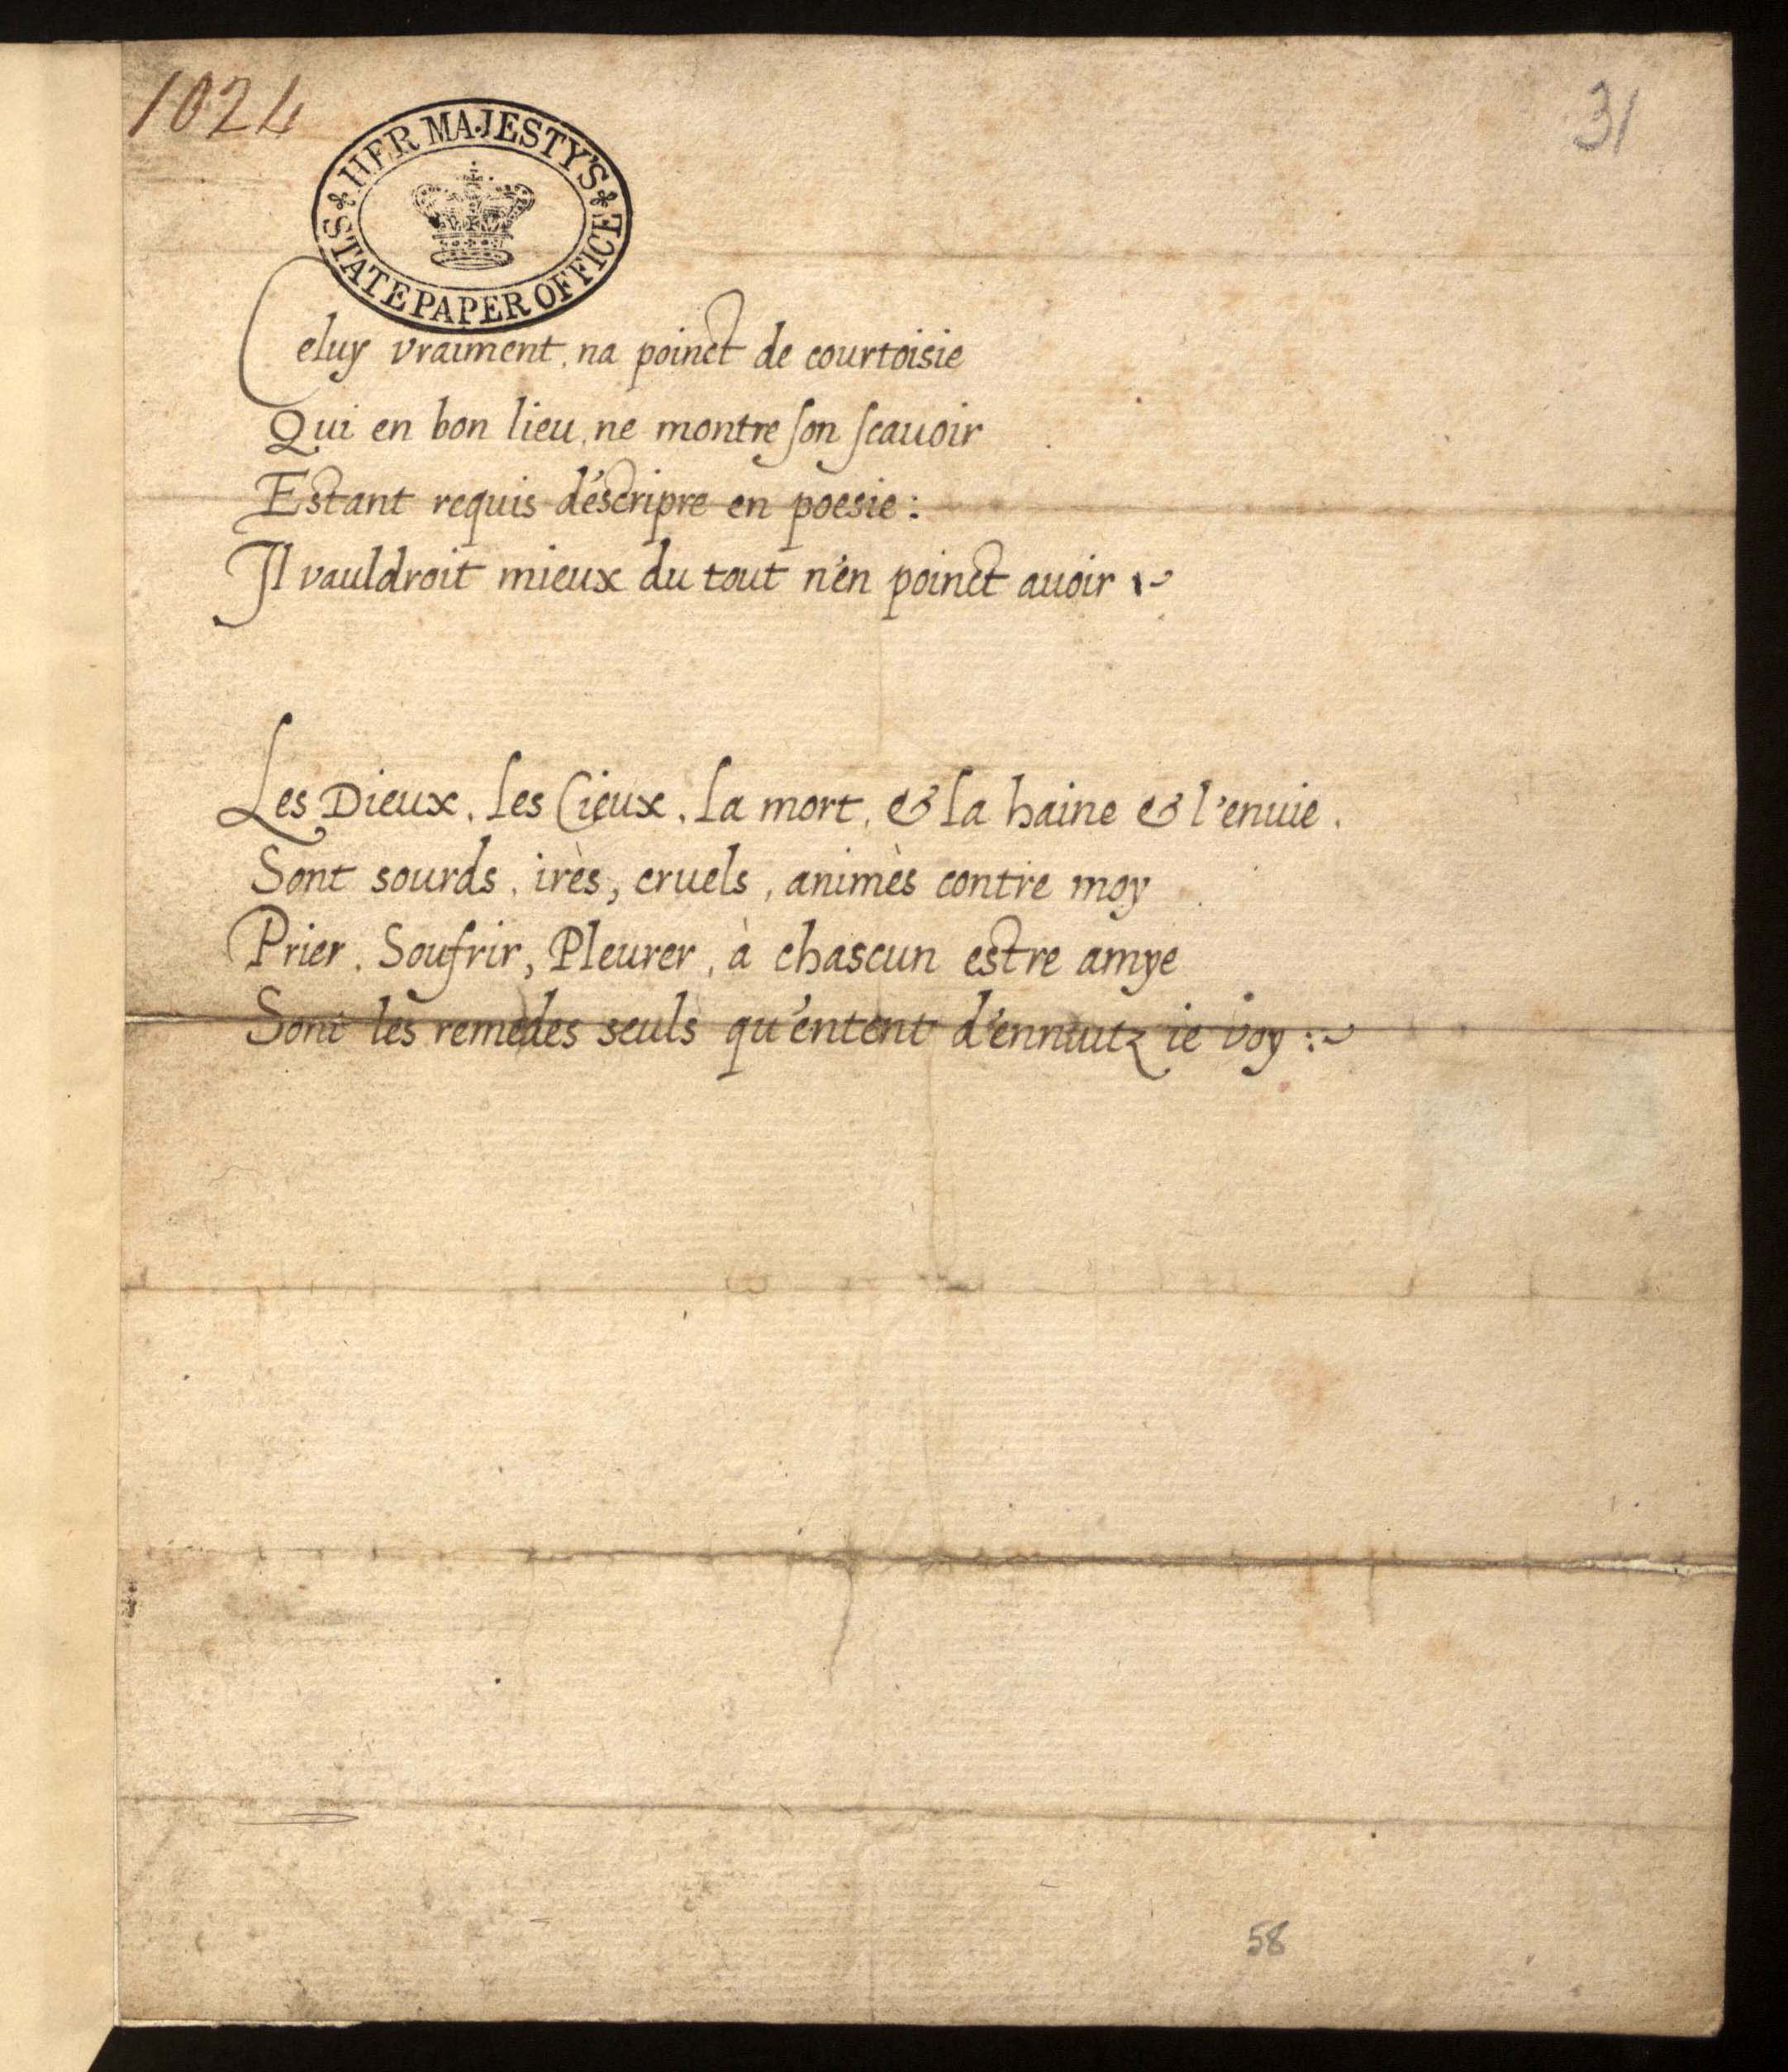 1024
31
HER MAJESTY'S
STATE PAPER OFFICE
Celuy vraiment, na poinct de courtoisie
Qui en bon lieu, ne montre ſon ſcauoir
Estant requis d'éscripre en poesie:
Il vauldroit mieux du tout n'en poinct auoir
Les Dieux, les Cieux, la mort, & la haine & l'enuie.
Sont sourds, irès, cruels, animès contre moy
Prier, Soufrir, Pleurer, à chascun estre amye
Sont les remedes seuls qu'entent d'ennuitz ie voy
58